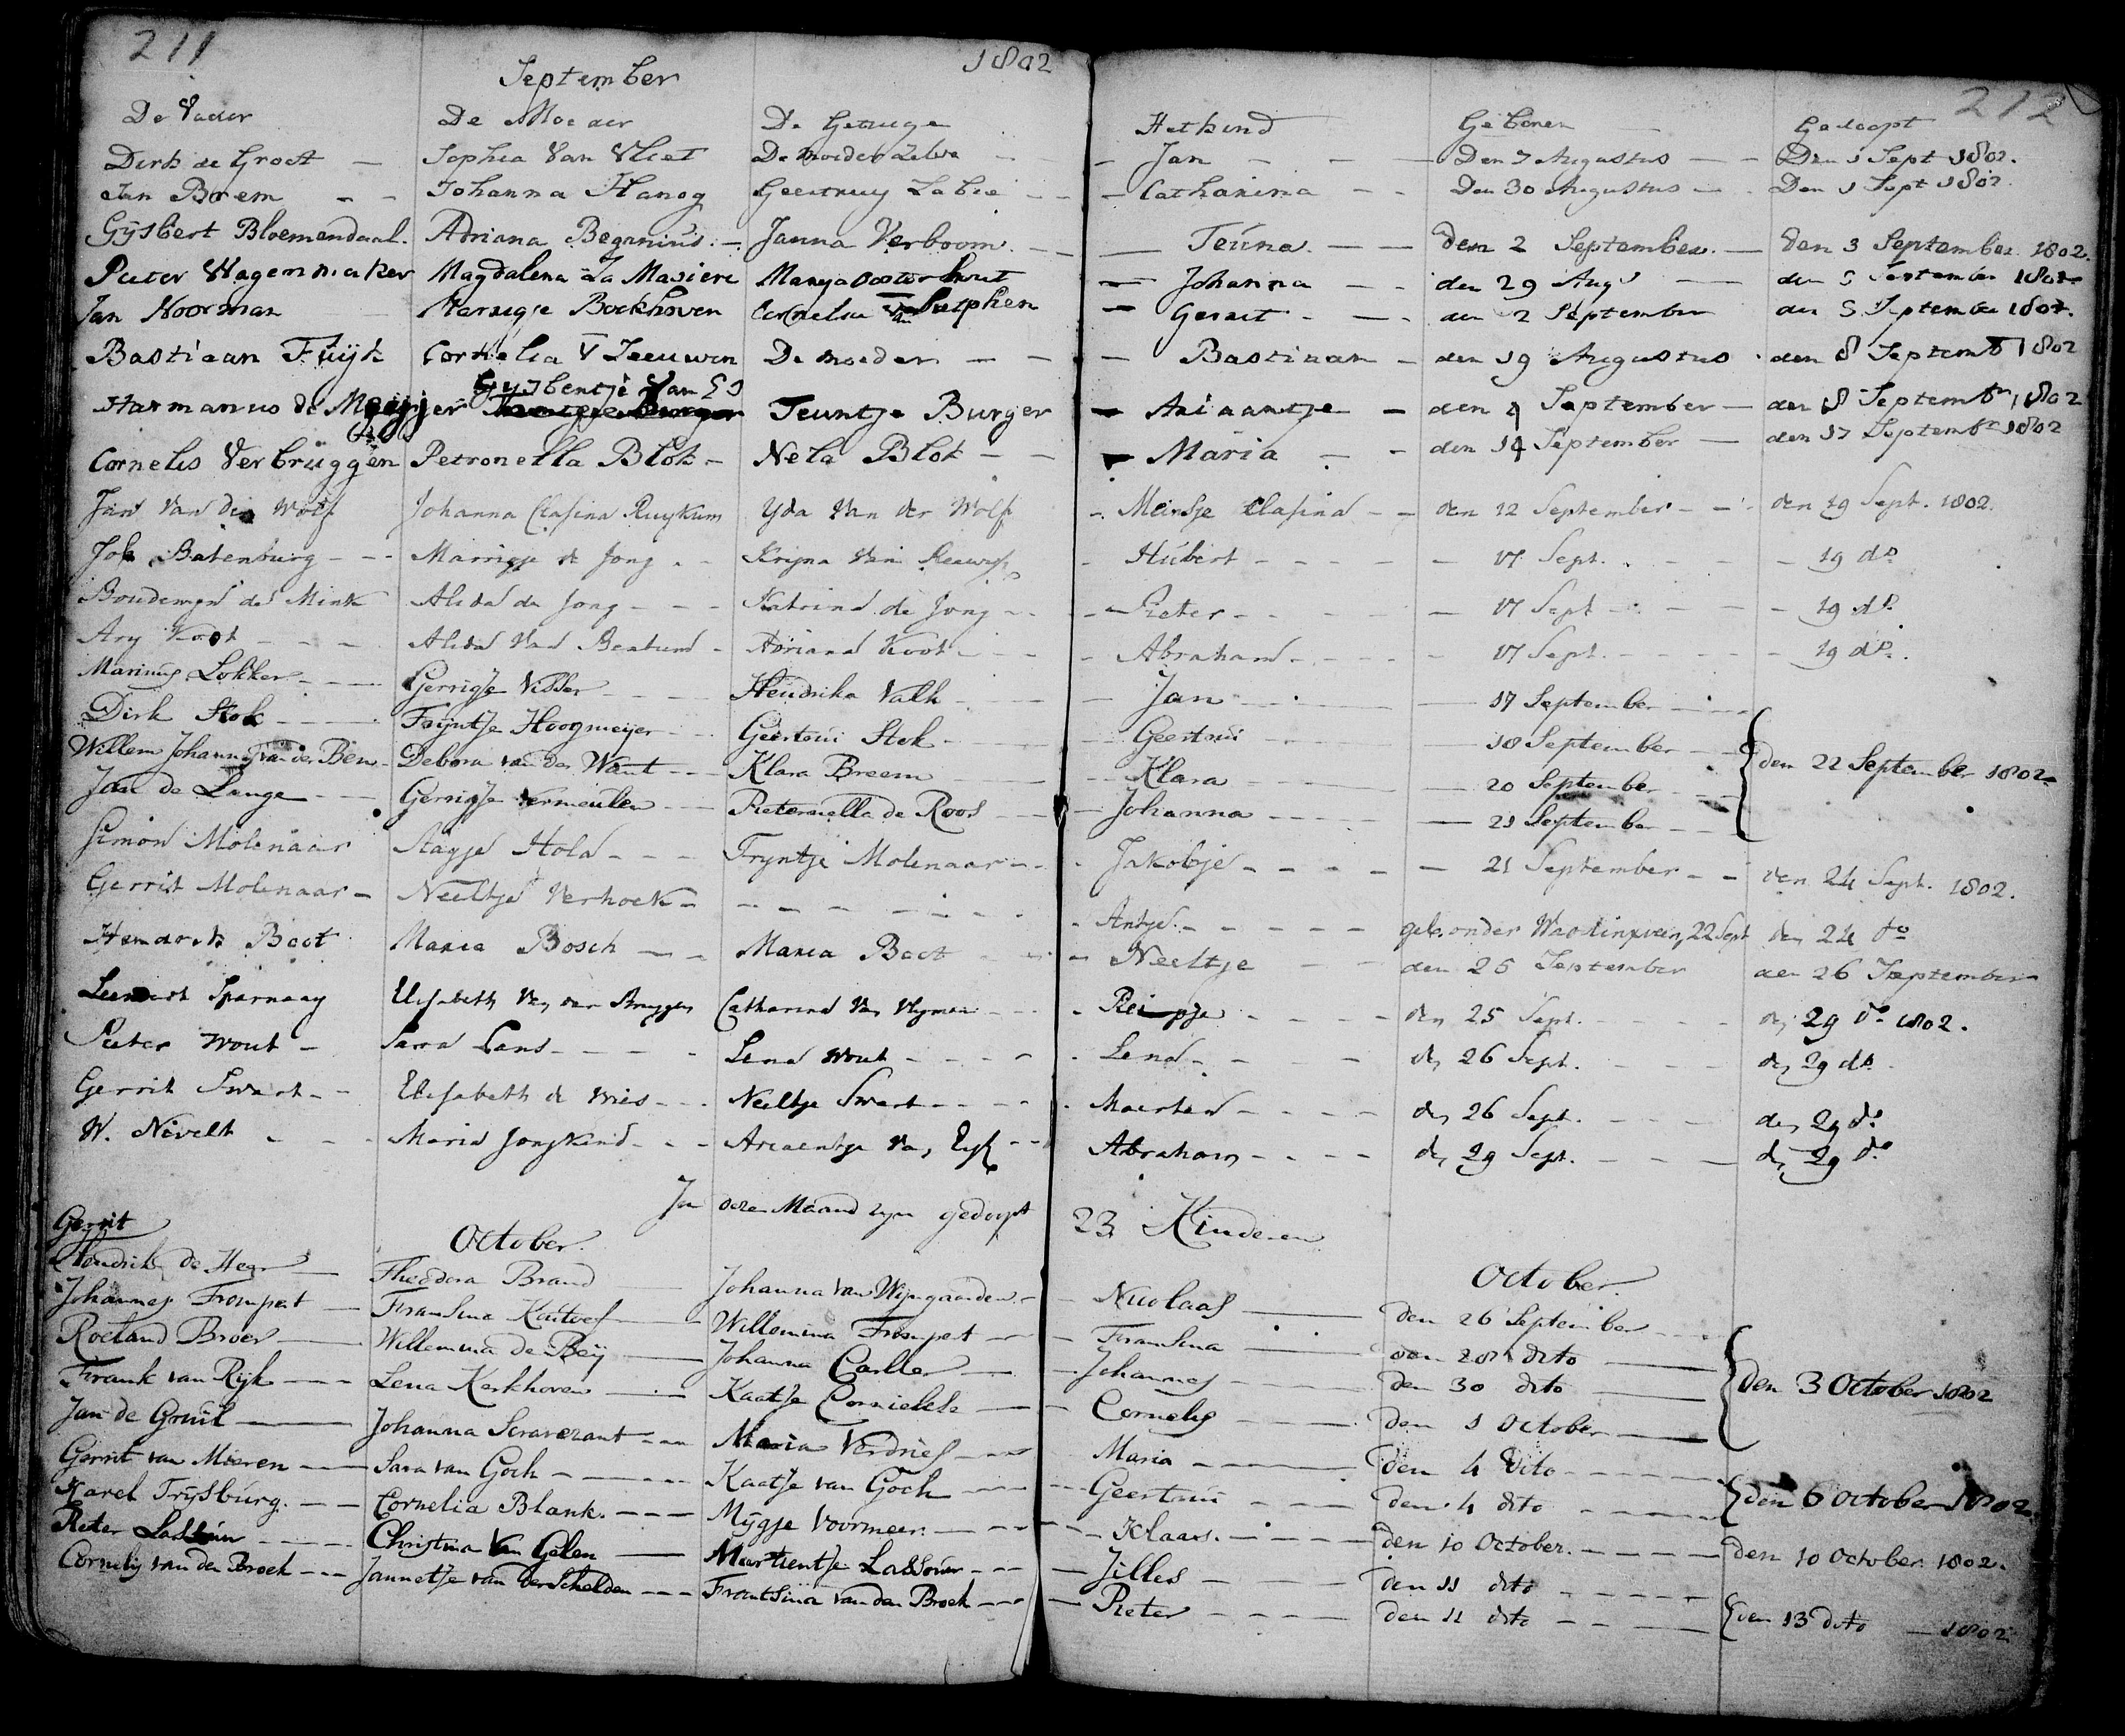 211
September 1802
De Vader De Moeder De Getuige
Dirk de Groot Sophia Van Vliet De moeder Zelve
Jan Borem Johanna Hanog Geertruy Labee
Gijsbert Bloemendaal. Adriana Beganius. Janna Verboom.
Pieter Wagenmaker Magdalena La Masiere Marya Oosterhout
Jan Noorman Marugje Boekhoven Cornelia van Sutphen
Bastiaan Fuijk Cornelia V Leeuwen De moeder
Harmanus de Meijjer Gysbentje Van Es Teuntje Burger
Cornelis Verbruggen Petronella Blok Nela Blok
Jan Van der Wolf Johanna Clasina Ruykum Yda Van der Wolf
Joh. Batenburg Marrigje de Jong Krijna Van
Boudewyn de Mink Alida de Jong Katrina de Jong
Ary Koot Alida Van Adriana Koot
Marinus Lokker Gerrigje Visser Hendrika Valk
Dirk Stok Fijntje Hoogmeijer Geertrui Stok
Willem Johannes van der Ben Debora van der Want Klara Breem
Jan de Lange Gerrigje Vermeulen Pieternella de Roos
Simon Molenaar Aagje Hola Tryntje Molenaar
Gerrit Molenaar Neeltje Verhoek
Hendrik Boot Maria Bosch Maria Boot
Leendert Sparnaay Elisabeth Van der Bruggen Catharina Van
Pieter Wout Sara Lans Lena Wout
Gerrit Swart Elisabeth de Vries Neeltje Swart
W. Nivelt Maria Jongkind Ariaentje Van Eyk
In deze Maand zyn gedoopt
Gerrit
October.
Hendrik de Heer Theodora Brand Johanna van Wijngaarden
Johannes Trompert Fransina Willemina Trompert
Roeland Broer Willemina de Beij Johanna Carlier
Frank van Rijk Lena Kerkhoven Kaatje
Jan de Gruil Johanna Scraverant Maria Verdries
Gerrit van Mieren Sara van Goch Kaatje van Goch
Karel Trijsburg. Cornelia Blank. Mijgje Voormeer.
Pieter Lassour Christina Van Gelen Martientje Lassour
Cornelis van den Broek Jannetje van der Schelden Frantsina van den Broek
212
Het kind Geboren Gedoopt
Jan Den 7 Augustus Den 1 Sept 1802.
Catharina Den 30 Augustus Den 1 Sept 1802.
Teuna den 2 September. den 3 September 1802.
Johanna den 29 Augs den 5 September 1802
Gerrit den 2 September den 5 September 1802.
Bastiaan den 19 Augustus den 8 Septembr 1802
Ariaantje den 4 September den 8 Septembr 1802
Maria den 14 September den 17 Septembr 1802
Meinsje Clasina den 12 September den 19 Sept. 1802.
Hubert 17 Sept. 19 do
Pieter 17 Sept 19 do
Abraham 17 Sept. 19 do
Jan 17 September
Geertrui 18 September
Klara 20 September den 22 September 1802
Johanna 21 September
Jakobje 21 September den 24 Sept. 1802.
Antje geb. onder Wadinxveen, 22 Sept den 24 do
Neeltje den 25 September den 26 September
Pietje den 25 Sept. den 29 do 1802.
Lena den 26 Sept. den 29 do
Maerten den 26 Sept. den 29 do
Abraham den 29 Sept. den 29 do
23 Kinderen
October.
Nicolaas den 26 September
Fransina den 28 dito
Johannes den 30 dito den 3 October 1802
Cornelis den 1 October
Maria den 4 dito
Geertrui den 4 dito den 6 October 1802
Klaas. den 10 October. den 10 October 1802.
Jilles den 11 dito
Pieter den 11 dito den 13 dito 1802